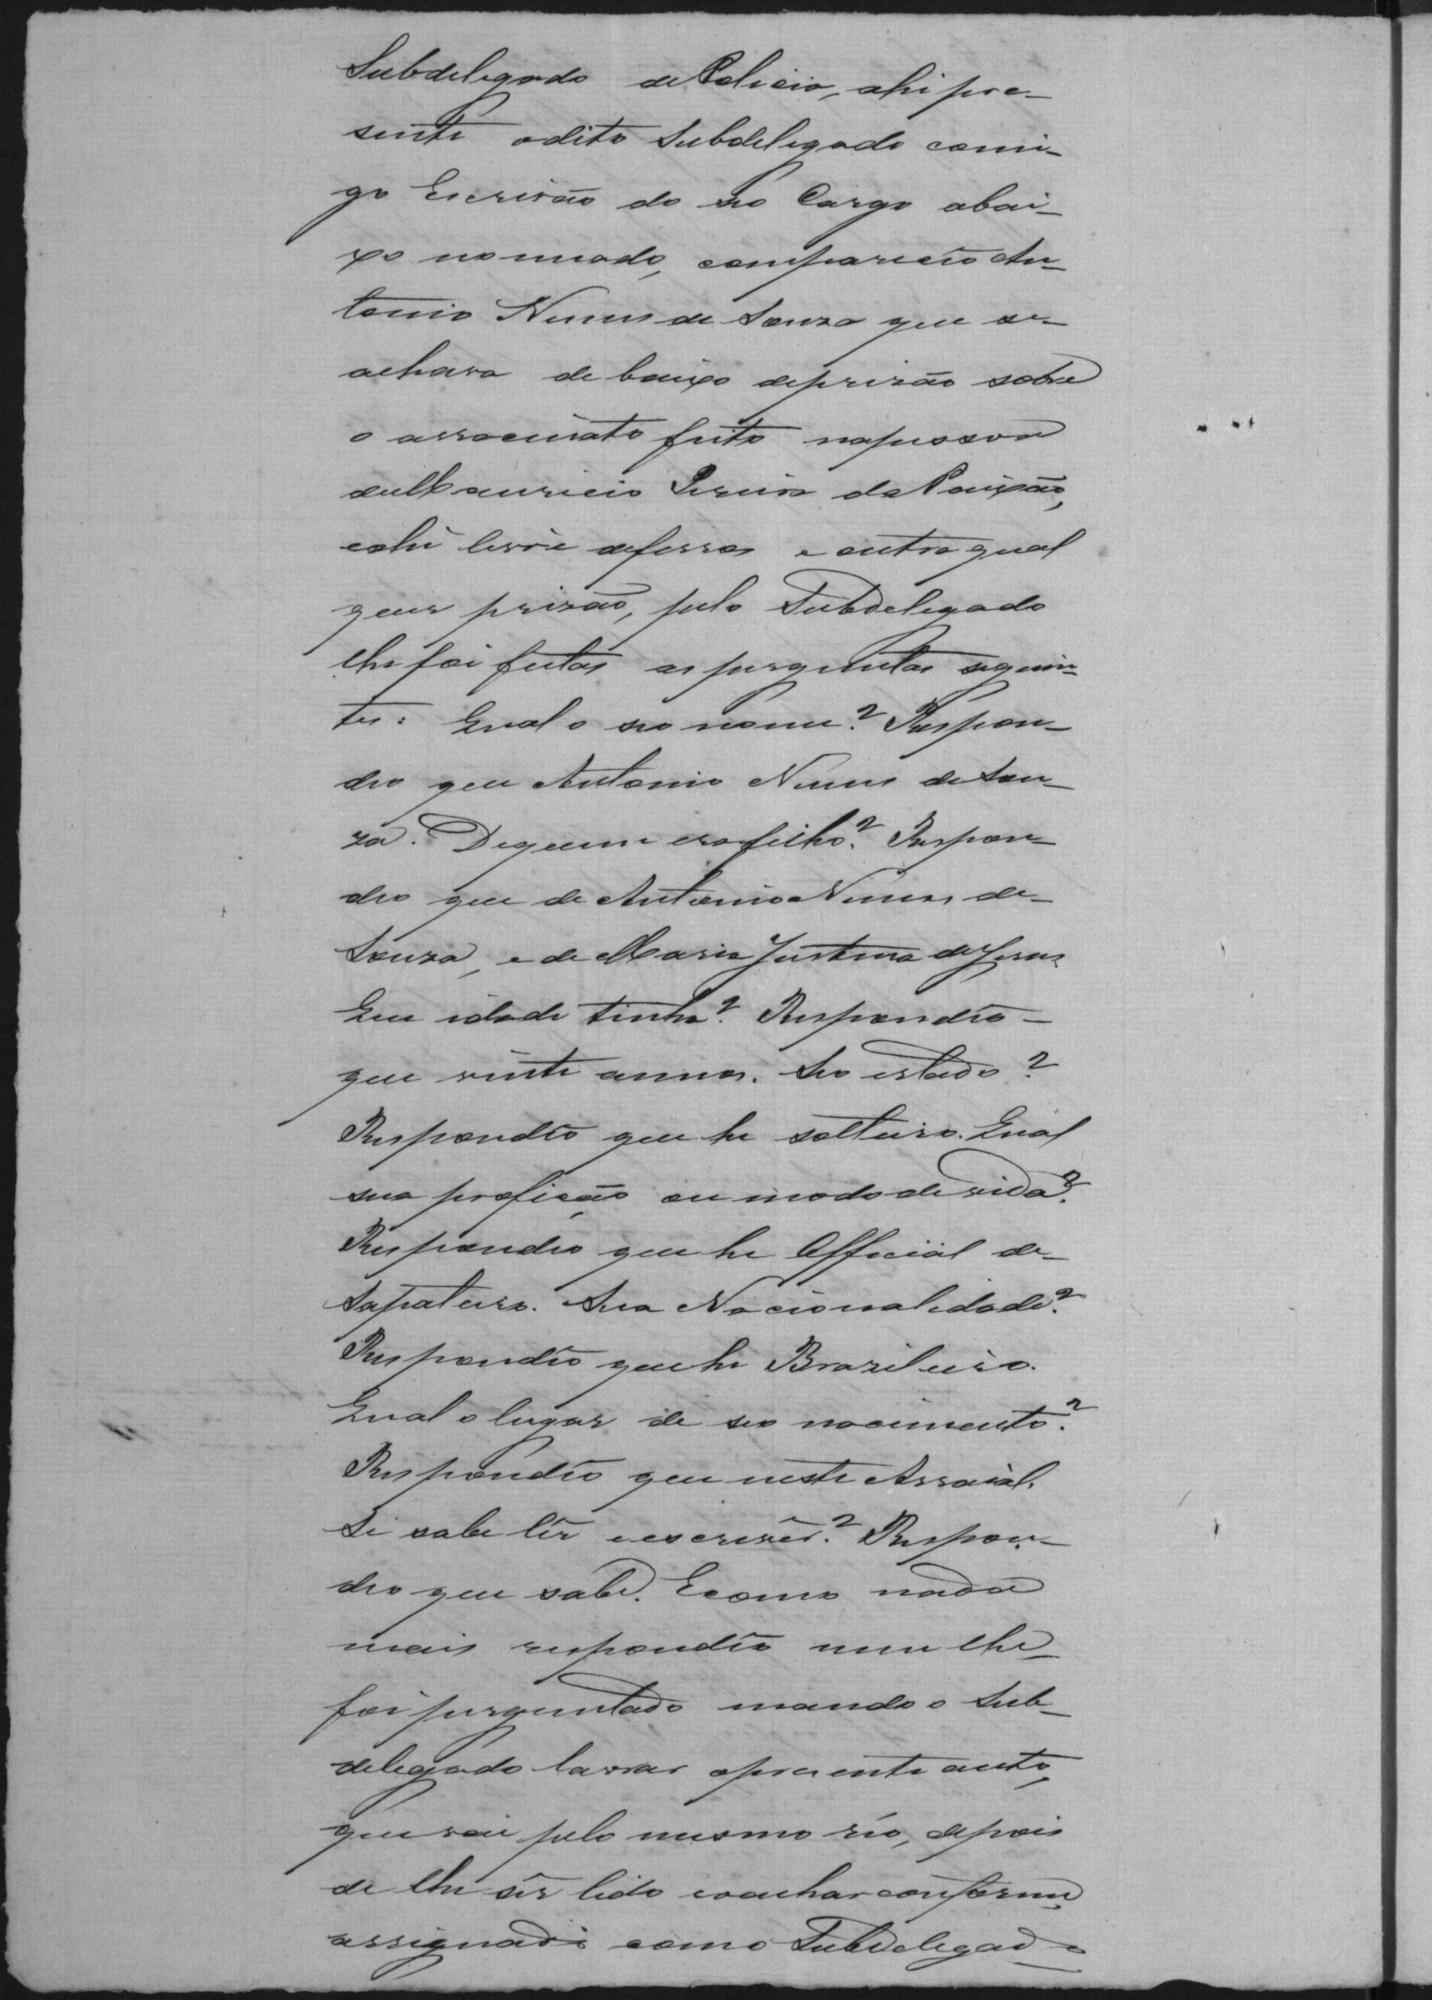 Subdelegado de Policia, ahi pre-
sente o dito Subdelegado comi-
go Escrivão do seo Cargo abai-
xo nomiado, compareceo An-
tonio Nunes de Souza que se-
achava de baixo de prizão sobre
o assacinato feito na pessoa
de Mauricio Pereira da Paixão,
e ahi livre de ferros e outra qual
quer prizão, pelo Subdelegado
lhe foi feitas as perguntas seguin-
tes: Qual o seo nome? Respon-
deo que Antonio Nunes de Sou-
za. De quem era filho? Respon-
deo que de Antonio Nunes de-
Souza, e de Maria Justina de Jesus
Que idade tinha? Respondêo-
que vinte annos. Seo estado?
Respondêo que he solteiro. Qual
sua profição ou modo de vida?
Respondêo que he Official de-
Sapateiro. Sua Nacionalidade?
Respondêo que he Brazileiro.
Qual o lugar de seo nacimento?
Respondêo que neste Arraial.
Si sabe lêr e escrever? Respon-
deo que sabe. E como nada
mais respondêo nem lhe-
foi perguntado mandou o Sub-
delegado lavrar o presente auto,
que vai pelo mesmo réo, depois
de lhe sêr lido e o achar conforme,
assignado como Subdelegado